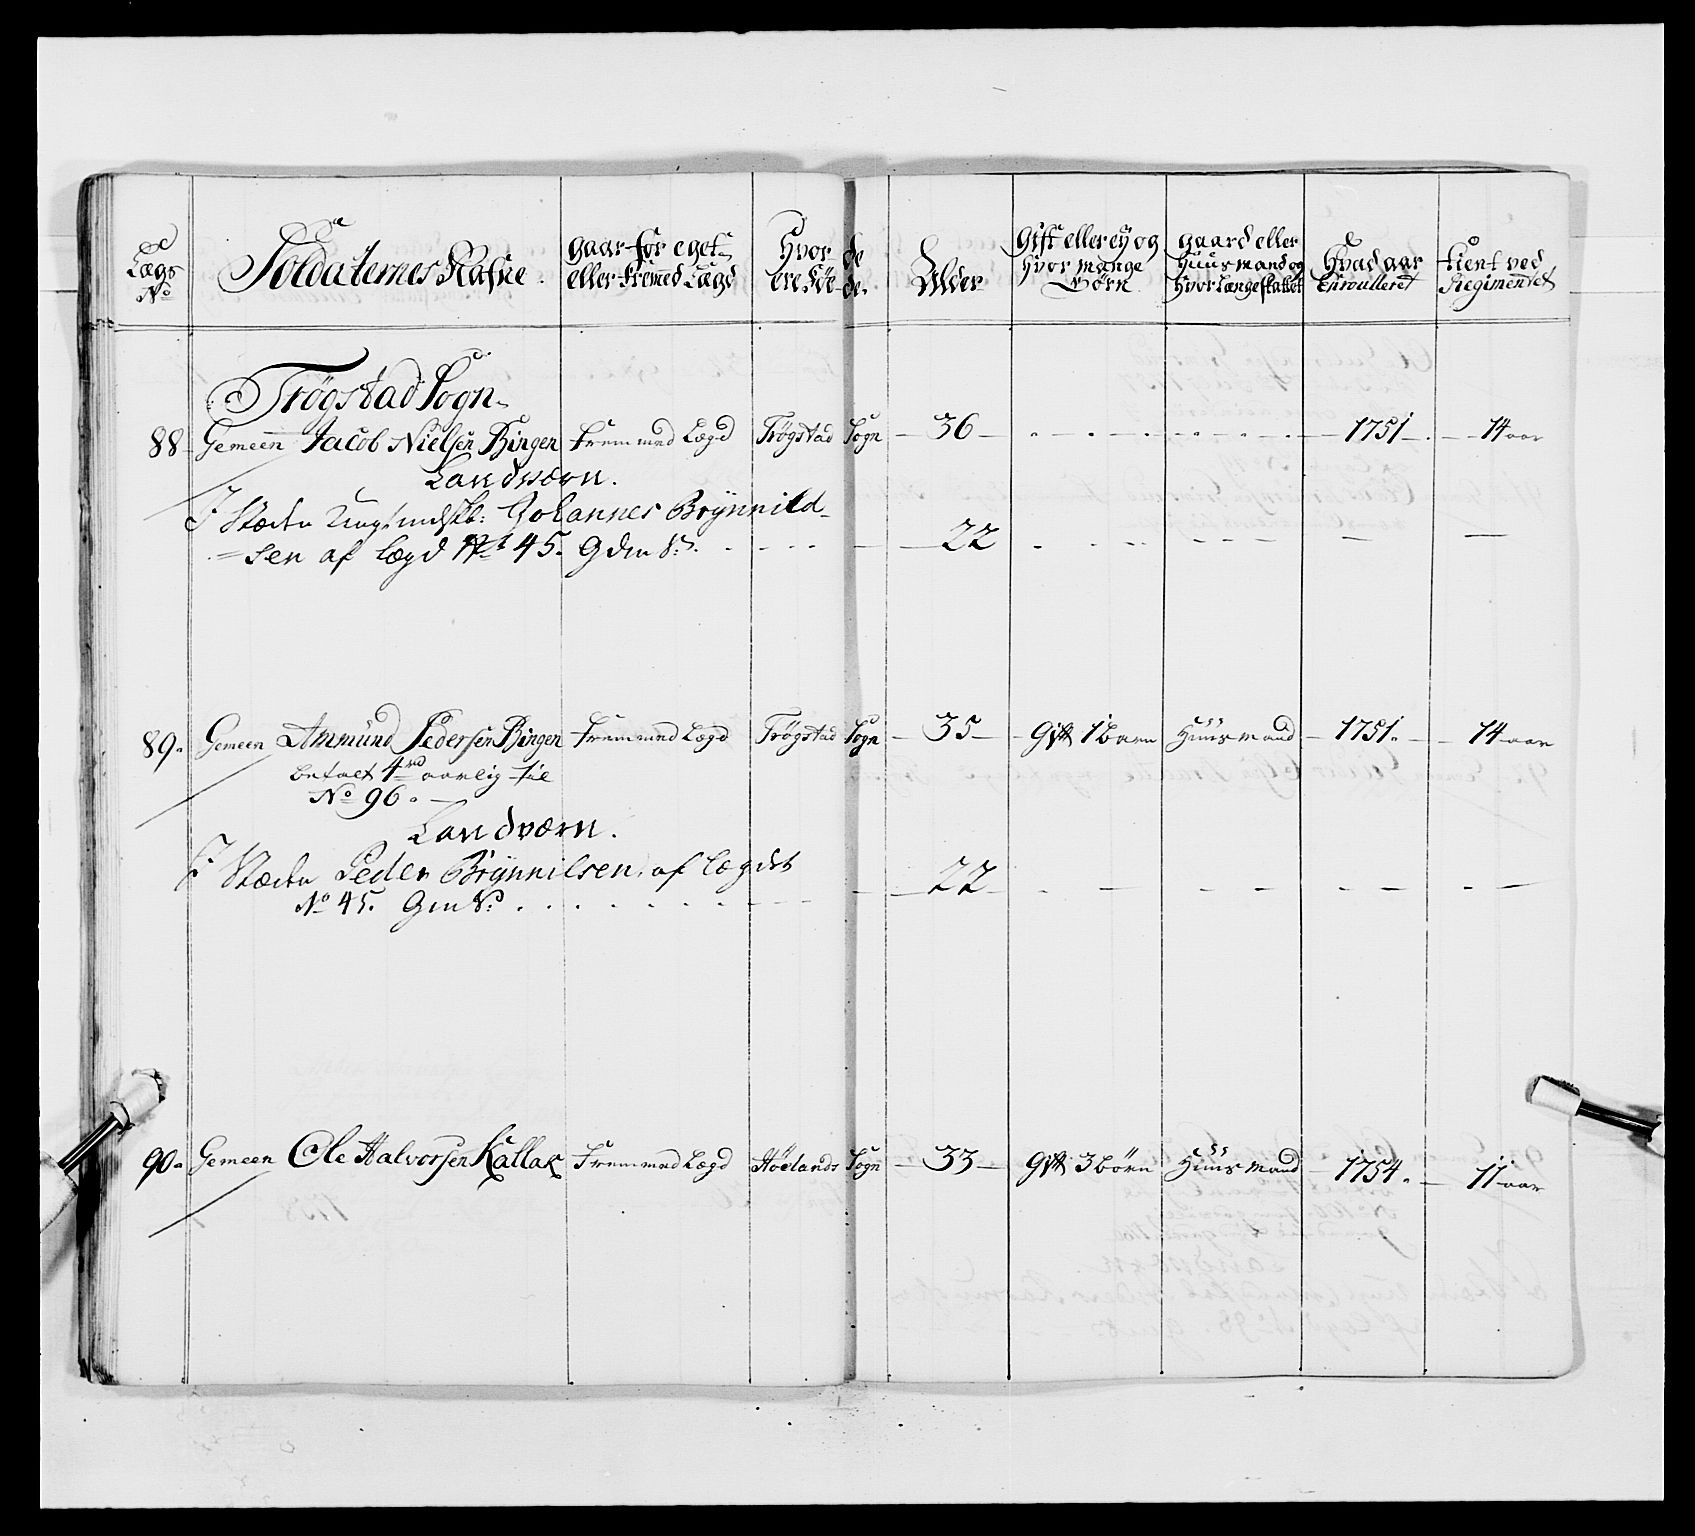 Lægs No
Soldaternes Nafne
gaar for eget eller Fremed Lægd
Hvor ere Föede
de de.
Alder
Gift eller ey og hvor mange Börn
gaard eller Huusmand og hvor længe flattet
Hvad aar Enroulleret
tient ved Regimentet
Trögstad Sogn
88 Gemeen Jacob Nielsen Bingen fremmed Lægd Trögstad Sogn 36 1751 14 aar
Landværn.
J Stæden Johannes Brynnild-
=sen af Lægd No 45. 22
89. Gemeen Ammund Pedersen Bingen fremmed Lægd Trögstad Sogn 35 Gift 1 barn Huusmand 1751. 14 aar
betalt 4 rd aarlig til
No 96.
Landværn.
J Stæden Peder Brynnilsen, af Lægdet 22
No 45.
90. Gemeen Ole Halvorsen Kallak Fremmed Lægd Höelands Sogn 33 Gift 3 börn Huusmand 1754. 11 aar